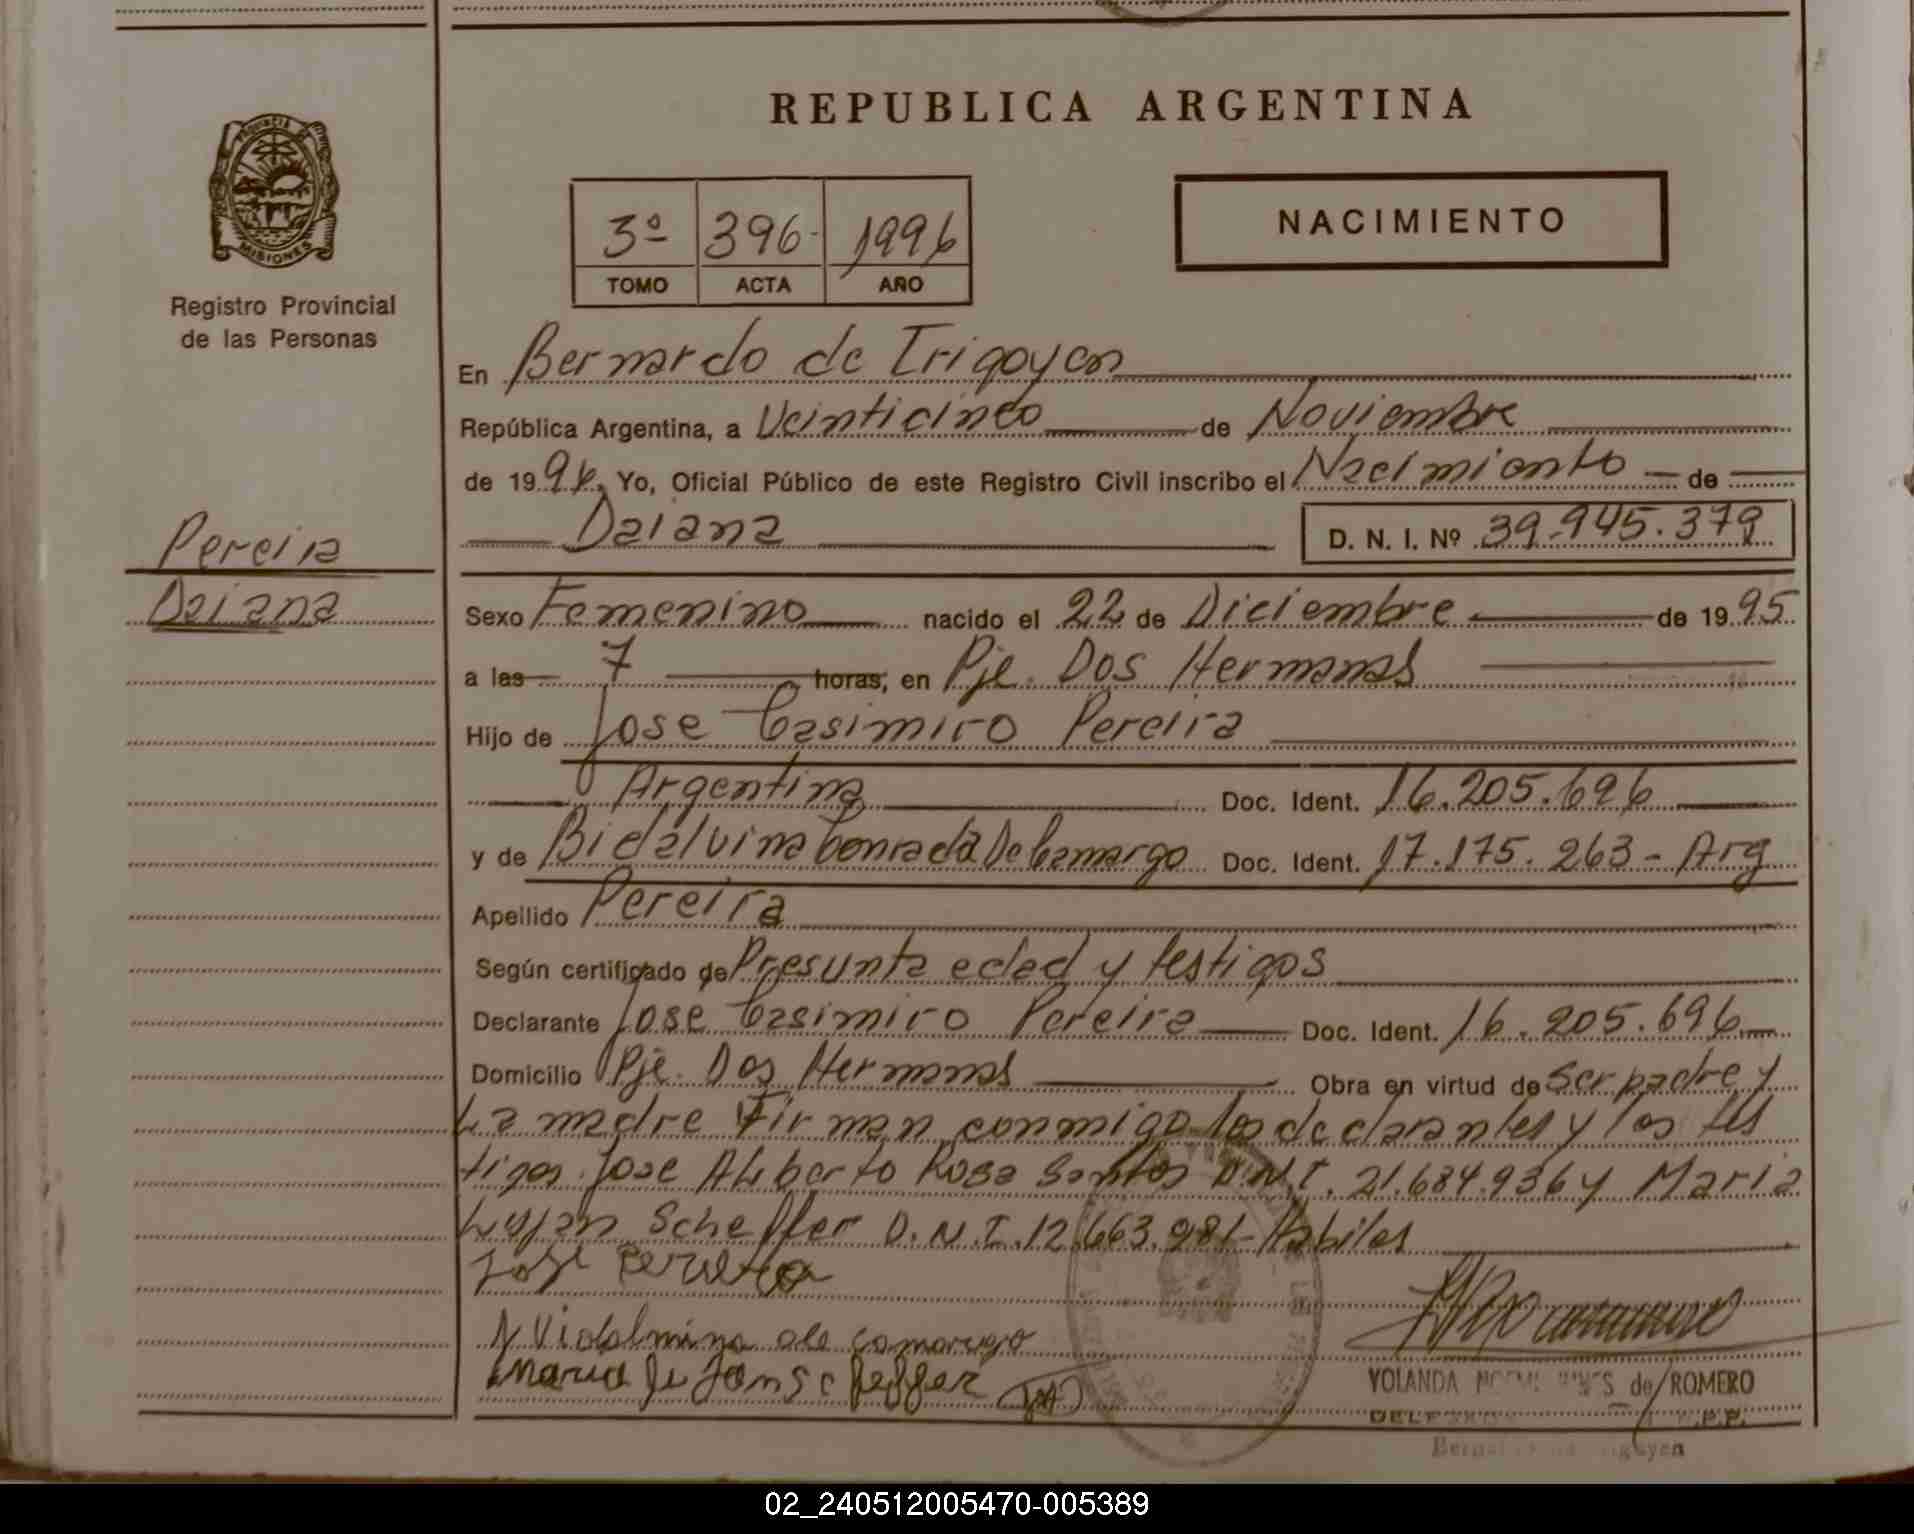 REPUBLICA ARGENTINA
PROVINCIA DE
MISIONES
Registro Provincial
de las Personas
3º 396- 1996
TOMO ACTA AÑO
NACIMIENTO
En Bernardo de Irigoyen
República Argentina, a Veinticinco de Noviembre
de 1996. Yo, Oficial Público de este Registro Civil inscribo el Nacimiento de
Daiana D. N. I. Nº 39.945.379
Pereira
Daiana
Sexo Femenino nacido el 22 de Diciembre de 1995
a las 7 horas, en Pje. Dos Hermanas
Hijo de Jose Casimiro Pereira
Argentina Doc. Ident. 16.205.696
y de Bidalvina Conrada De Camargo Doc. Ident. 17.175.263- Arg
Apellido Pereira
Según certificado de Presunta edad y testigos
Declarante José Casimiro Pereira Doc. Ident. 16.205.696
Domicilio Pje. Dos Hermanas Obra en virtud de Ser padre y
La madre Firman conmigo los declarantes y los tes
tigos Jose Aliberto Rosa Santos D.N.I. 21.684.936 y Maria
Lujan Scheffer D.N.I. 12.663.981- Habiles
José Pereira
Vidalmina de camargo
YOLANDA de ROMERO
R.P.P.
02_240512005470-005389